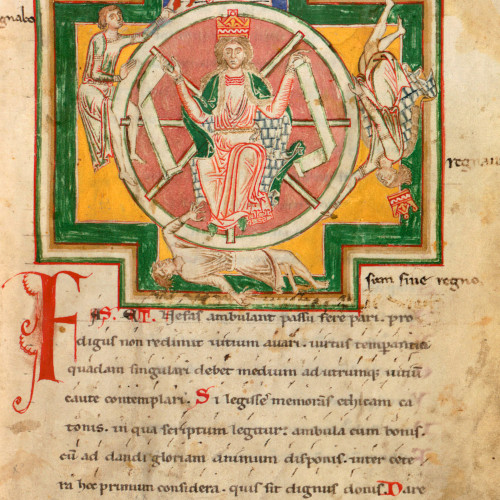 gnabo
regnaui
sum sine regno
FAS. ET. Nefas ambulant passu fere pari. pro
digus non redimit uitium auari. uirtus temperantia
quadam singulari debet medium ad utrumque uitiū
caute contemplari. Si legisse memoras ethicam ca
tonis. in qua scriptum legitur: ambula cum bonis.
cū ad dandi gloriam animum disponis. inter cete
ra hec primum considera. quis sit dignus donis. Dare